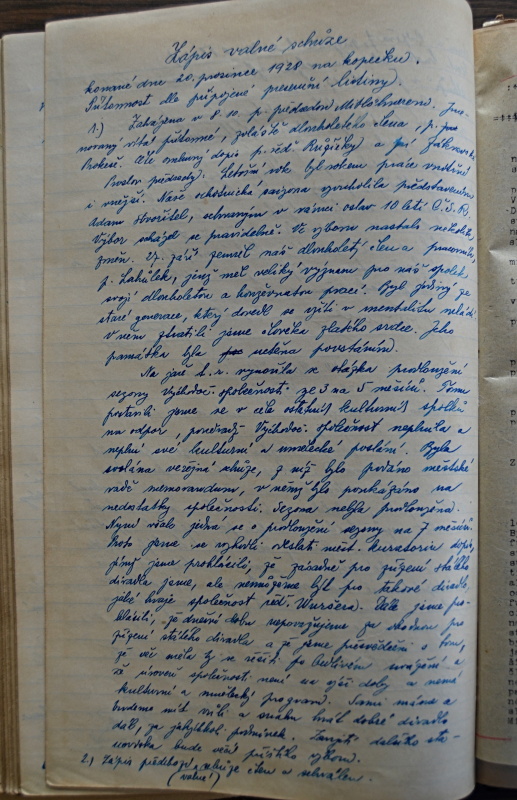 Zápis valné schůze
konané dne 20. prosince 1928 na kopečku.
Přítomnost dle připojené presenční listiny.
1.) Zahájena v 8.10. p. předsedou Mitlöhnerem. Jme-
novaný vítá přítomné, zvláště dlouholetého člena, p.
Prokeše. Ale omluvný dopis p. řed. Růžičky a
Proslov předsedy: Letošní rok byl rokem práce vnitřní
i vnější. Naše ochotnická saisona vyvrcholila představením
Adam stvořitel, sehraným v rámci oslav 10 letí Č.S.R.
Výbor scházel se pravidelně. Ve výboru nastalo několik
změn. 27. září zemřel náš dlouholetý člen a pracovník,
p. Lahůlek, jenž měl veliký význam pro náš spolek
svojí dlouholetou a konservator prací. Byl jediný ze
staré generace, který dovedl se vžíti v mentalitu mládí.
V něm ztratili jsme člověka zlatého srdce. Jeho
památka byla uctěna povstáním.
Na jaře t. r. vynořila se otázka prodloužení
sezony Východoč. společnosti ze 3 na 5 měsíců. Tomu
postavili jsme se v čele ostatních kulturních spolků
na odpor, poněvadž Východoč. společnost neplnila a
neplní své kulturní a umělecké poslání. Byla
svolána veřejná schůze, z níž bylo podáno městské
radě memorandum, v němž bylo poukázáno na
nedostatky společnosti. Sezona nebyla prodloužena.
Nyní však jedná se o prodloužení sezony na 7 měsíců.
Proto jsme se rozhodli odeslati měst. kuratoriu dopis,
jímž jsme prohlásili, že zásadně pro zřízení stálého
divadla jsme, ale nemůžeme být pro takové divadlo,
jaké hraje společnost řed. Wursera. Dále jsme pro-
hlásili, že dnešní dobu nepovažujeme za vhodnou pro
zřízení stálého divadla a že jsme přesvědčeni o tom,
že věc měla by se řešiti po bedlivém uvážení a
že úroveň společnosti není na výši doby a nemá
kulturní a umělecký program. Sami máme a
budeme mít vůli a snahu hrát dobré divadlo
dál, za jakýchkol podmínek. Zaujetí dalšího sta-
noviska bude věcí příštího výboru.
2.) Zápis předešlé schůze čten a schválen.
(valné)